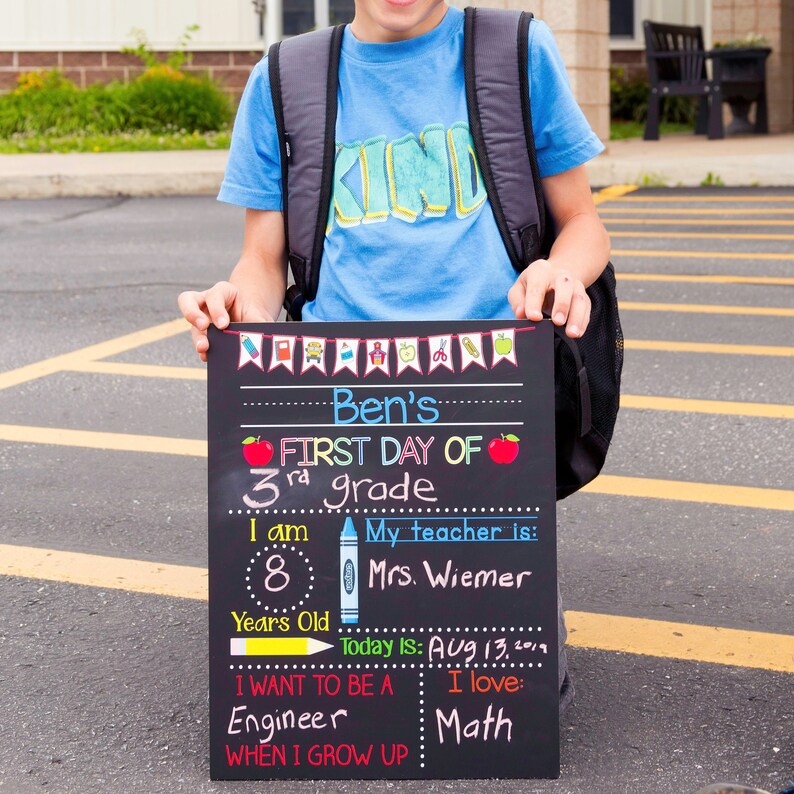 KIND
Ben's
FIRST DAY OF
3rd grade
I am
8
Years Old
My teacher is:
crayon
Mrs. Wiemer
Today Is: Aug 13, 2019
I WANT TO BE A
Engineer
WHEN I GROW UP
I love:
Math